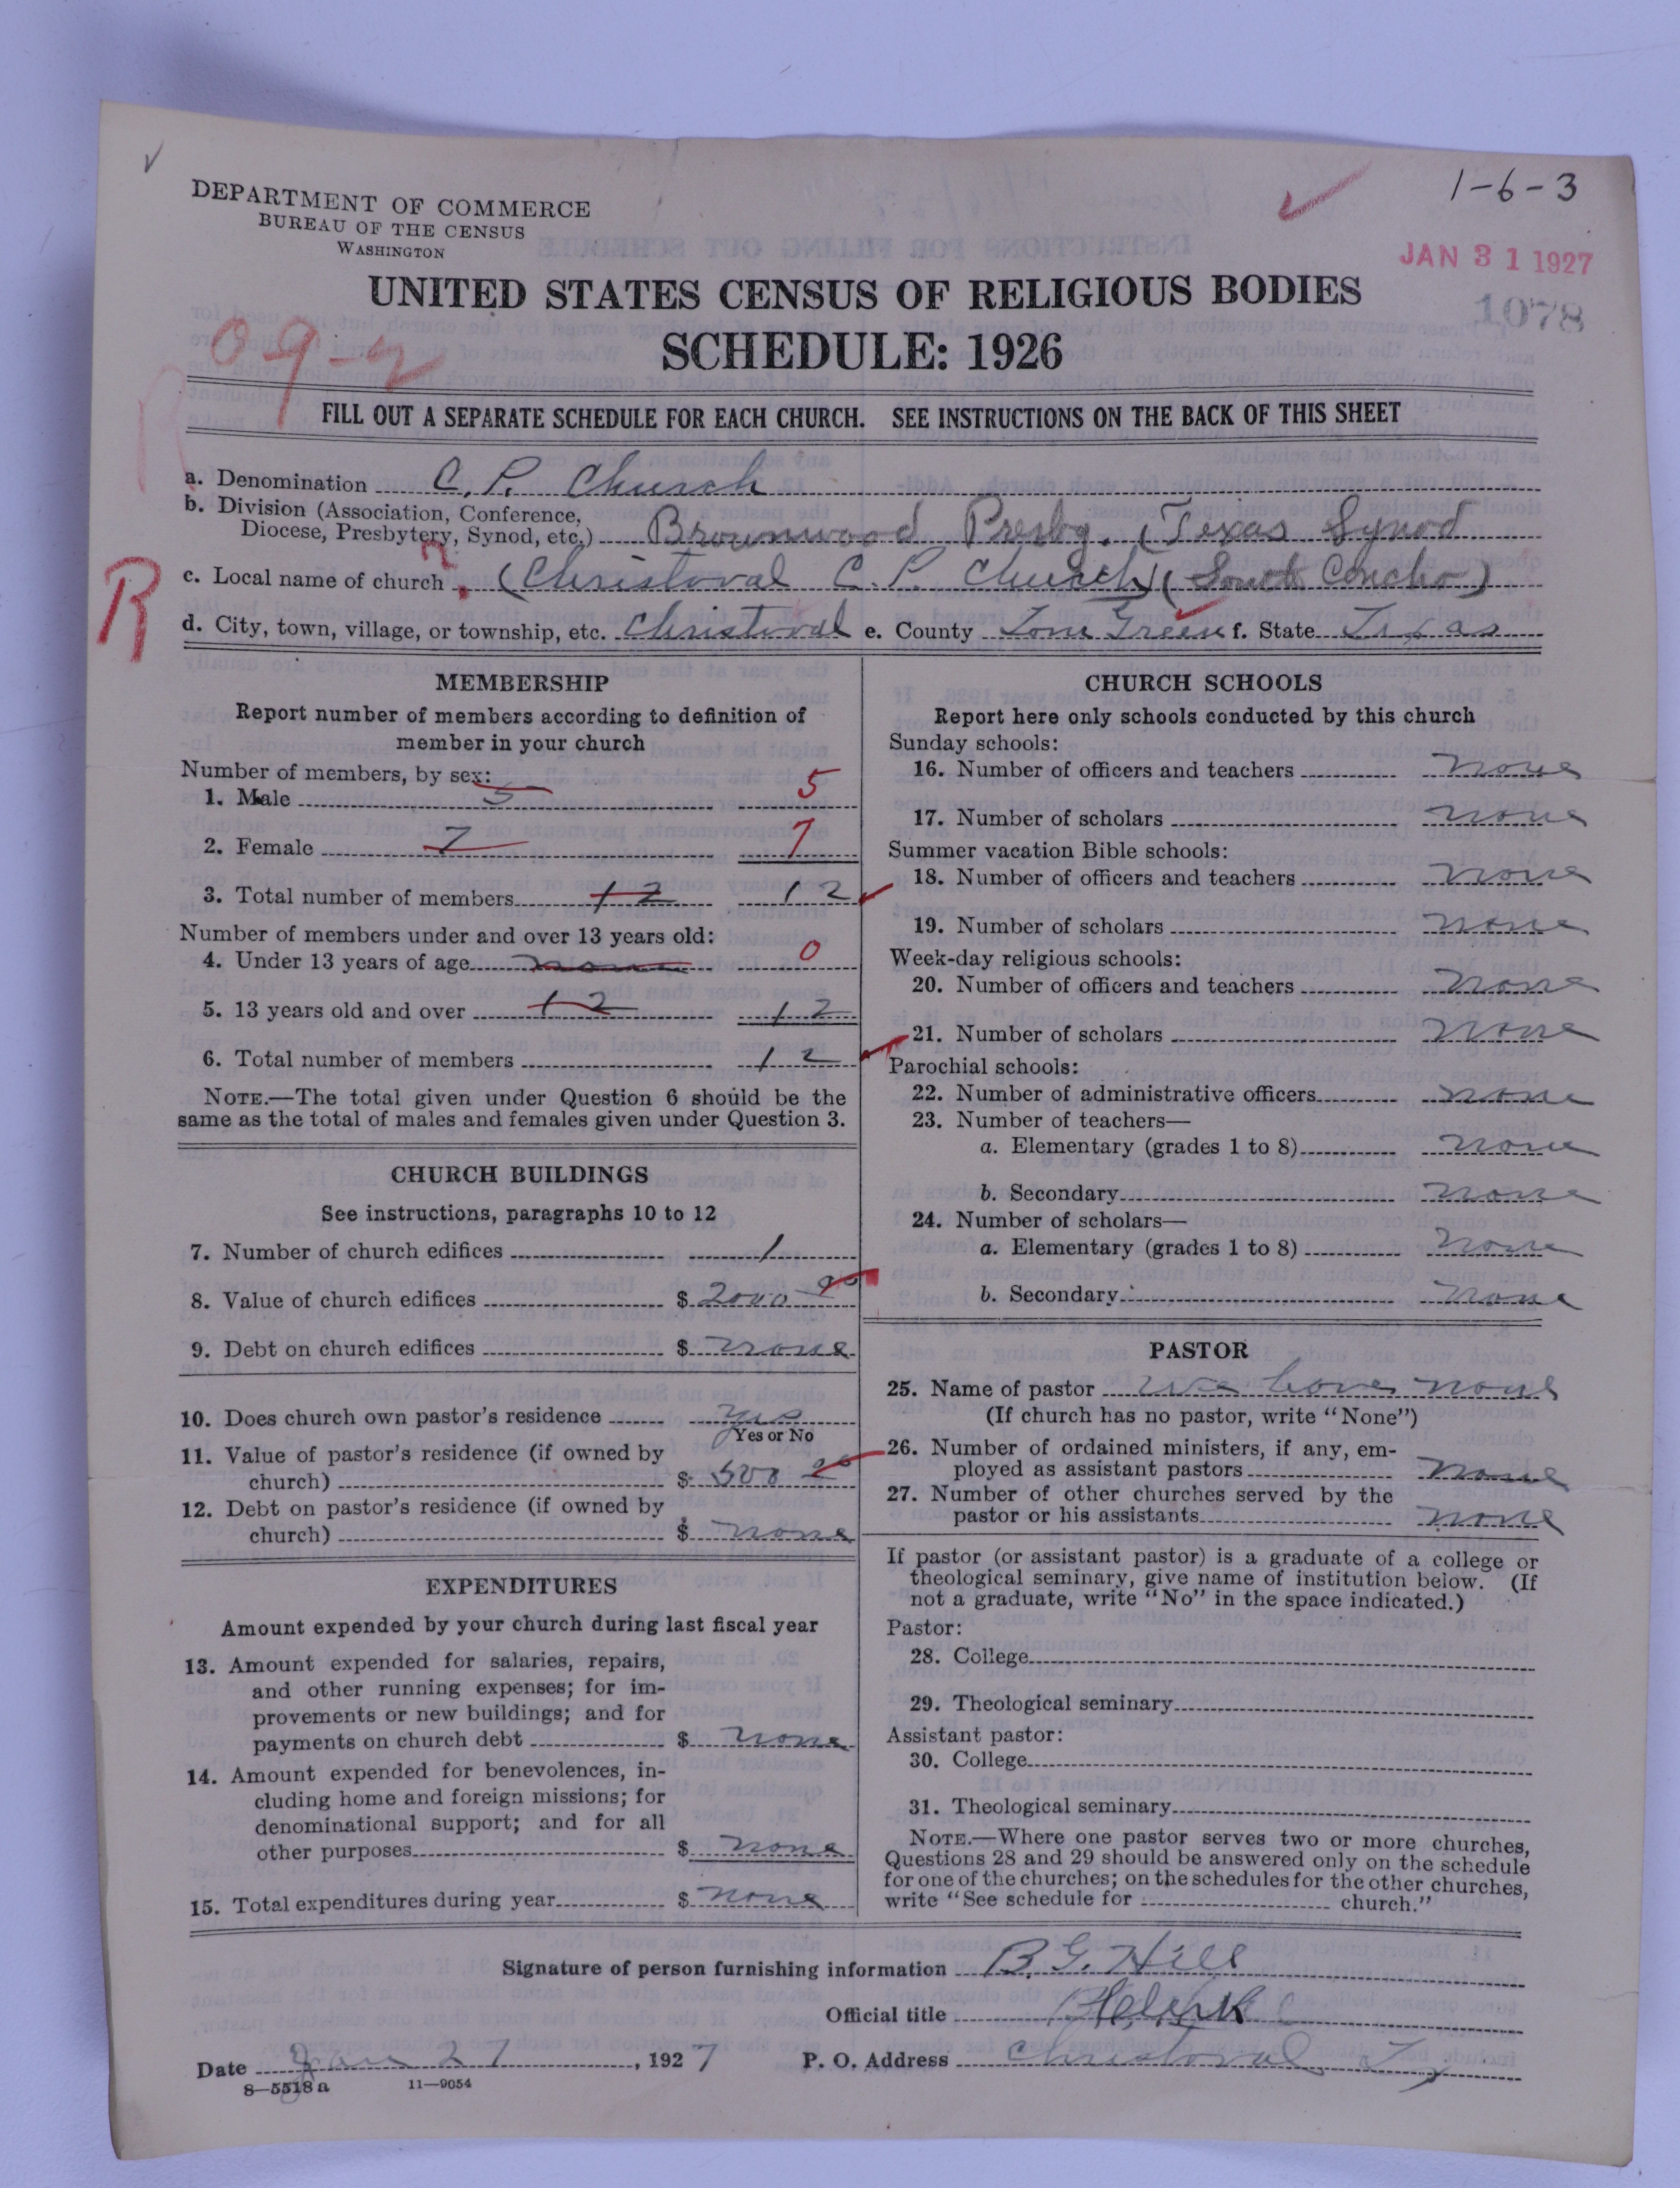 1-6-3
DEPARTMENT OF COMMERCE
BUREAU OF THE CENSUS
WASHINGTON
JAN 31 1927
1078
UNITED STATES CENSUS OF RELIGIOUS BODIES
SCHEDULE: 1926
09-2
R
FILL OUT A SEPARATE SCHEDULE FOR EACH CHURCH. SEE INSTRUCTIONS ON THE BACK OF THIS SHEET
a. Denomination C. P. Church
b. Division (Association, Conference,
Diocese, Presbytery, Synod, etc.) Brownwood Presby. (Texas Synod
R
c. Local name of church (Christoval C. P. Church) (South Concho)
d. City, town, village, or township, etc. Christoval e. County Tom Green f. State Texas
MEMBERSHIP
Report number of members according to definition of
member in your church
Number of members, by sex:
1. Male 5 5
2. Female 7 7
3. Total number of members 12 12
Number of members under and over 13 years old:
4. Under 13 years of age none 0
5. 13 years old and over 12 12
6. Total number of members 12
NOTE.—The total given under Question 6 should be the
same as the total of males and females given under Question 3.
CHURCH BUILDINGS
See instructions, paragraphs 10 to 12
7. Number of church edifices 1
8. Value of church edifices $ 2000 00
9. Debt on church edifices $ none
10. Does church own pastor's residence yes
Yes or No
11. Value of pastor's residence (if owned by
church) $ 500 00
12. Debt on pastor's residence (if owned by
church) $ none
EXPENDITURES
Amount expended by your church during last fiscal year
13. Amount expended for salaries, repairs,
and other running expenses; for im-
provements or new buildings; and for
payments on church debt $ none
14. Amount expended for benevolences, in-
cluding home and foreign missions; for
denominational support; and for all
other purposes $ none
15. Total expenditures during year $ none
CHURCH SCHOOLS
Report here only schools conducted by this church
Sunday schools:
16. Number of officers and teachers none
17. Number of scholars none
Summer vacation Bible schools:
18. Number of officers and teachers none
19. Number of scholars none
Week-day religious schools:
20. Number of officers and teachers none
21. Number of scholars none
Parochial schools:
22. Number of administrative officers none
23. Number of teachers—
a. Elementary (grades 1 to 8) none
b. Secondary none
24. Number of scholars—
a. Elementary (grades 1 to 8) none
b. Secondary none
PASTOR
25. Name of pastor We have none
(If church has no pastor, write "None")
26. Number of ordained ministers, if any, em-
ployed as assistant pastors none
27. Number of other churches served by the
pastor or his assistants none
If pastor (or assistant pastor) is a graduate of a college or
theological seminary, give name of institution below. (If
not a graduate, write "No" in the space indicated.)
Pastor:
28. College
29. Theological seminary
Assistant pastor:
30. College
31. Theological seminary
NOTE.—Where one pastor serves two or more churches,
Questions 28 and 29 should be answered only on the schedule
for one of the churches; on the schedules for the other churches,
write "See schedule for church."
Signature of person furnishing information B. G. Hill
Official title Clerk
Date Jan 27, 1927 P. O. Address Christoval Tx
8—5518 a 11—9054